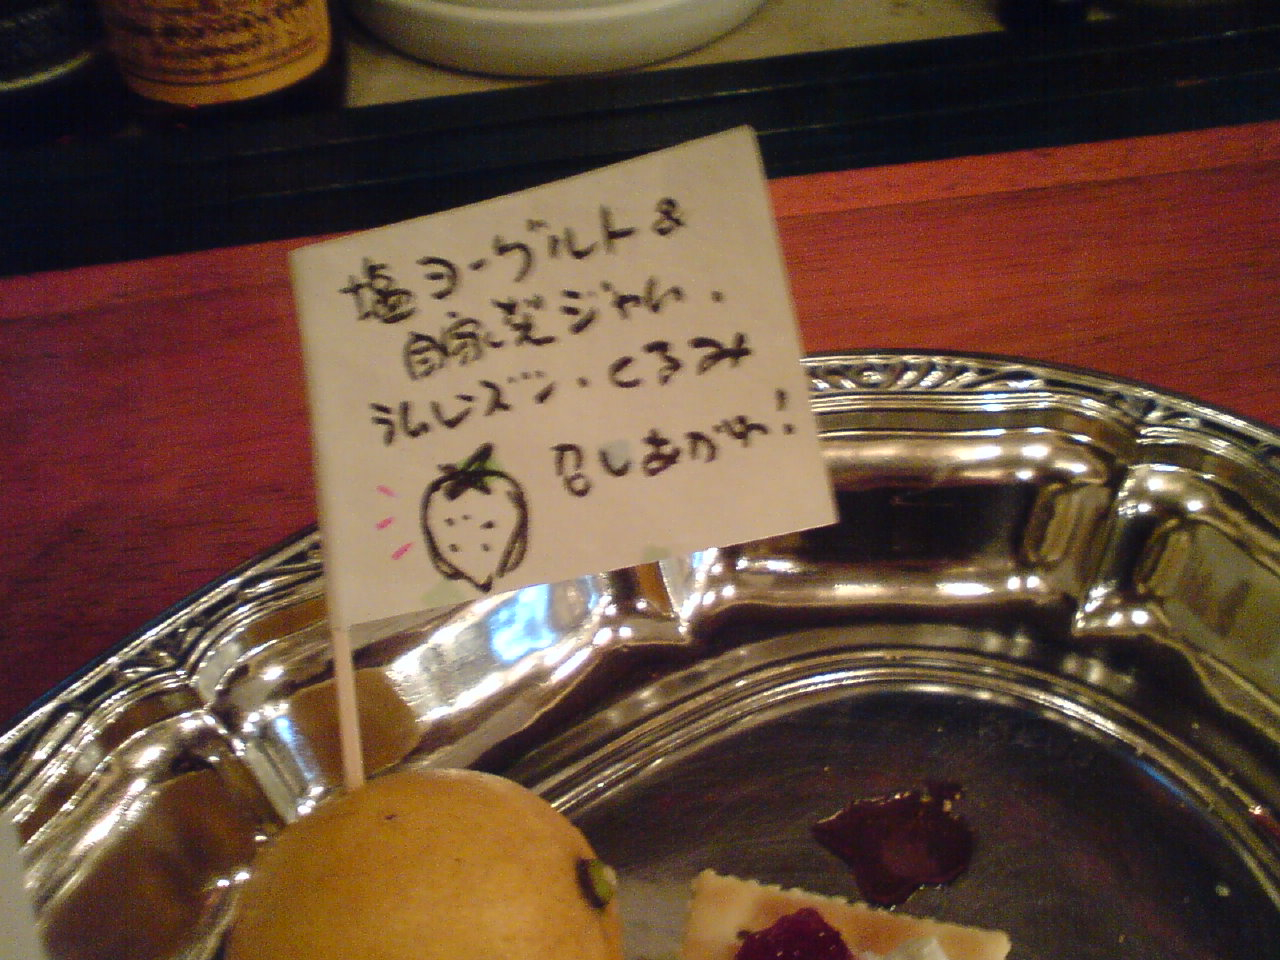 塩ヨーグルト&
自家製ジャム・
ラムレーズン・くるみ
召しあがれ!